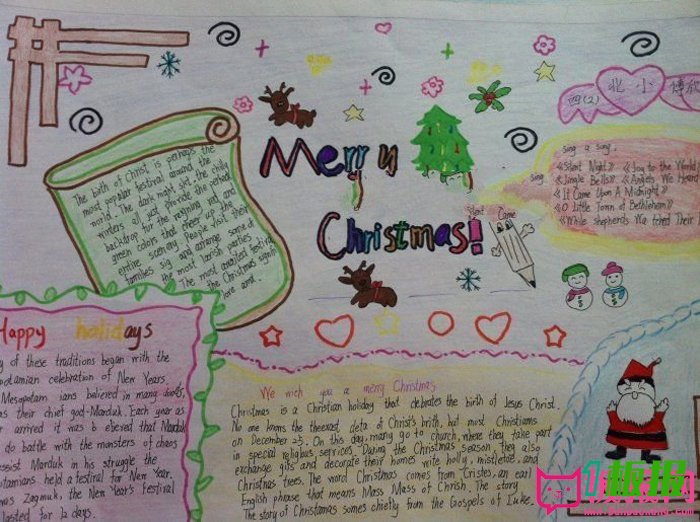 四(2)
北小
Merry
Christmas!
The birth of Christ is perhaps the
most popular festival around the
world. The dark night set the chilly
winters all just provide the perfect
backdrop for the reigning red and
green colors that cheer up the
entire scenary. People visit their
families sig and arrange some of
the most lavish parties
The most awaited festival
the Christmas
sing a song
sing
《Silent Night》 《Joy to the World》
《Jingle Bells》 《Angels We Heard
《It Came Upon A Midnight》
《O Little Town of Bethlehem》
《While shepherds Watched Their
Silent Came
Happy holidays
of these traditions began with the
potamian celebration of New Years.
Mesopotam ians belived in many gods,
as their chief god-Marduk. Each year as
arrived it was b elieved that Marduk
do battle with the monsters of chaos
assist Marduk in his struggle the
potamians held a festival for New Year.
mas Zagmuk, the New Year's festival
lasted for 12 days.
We wich you a merry Christmas
Christmas is a Christian holiday that clebrates the birth of Jesus Christ.
No one knows the theexact deta of Christ's brith, but most Christians
on December 25. On this day, many go to church, where they take part
in special religious services. During the Christmas season, they also
exchange gifts and decorate their homes with holly, mistletoe, and
Christmas trees. The word Christmas comes from Cristes, an earl
English phrase that means Mass Mass of Christ. The story
The story of Christamas somes chiefly from the Gospels of Luke.
板报